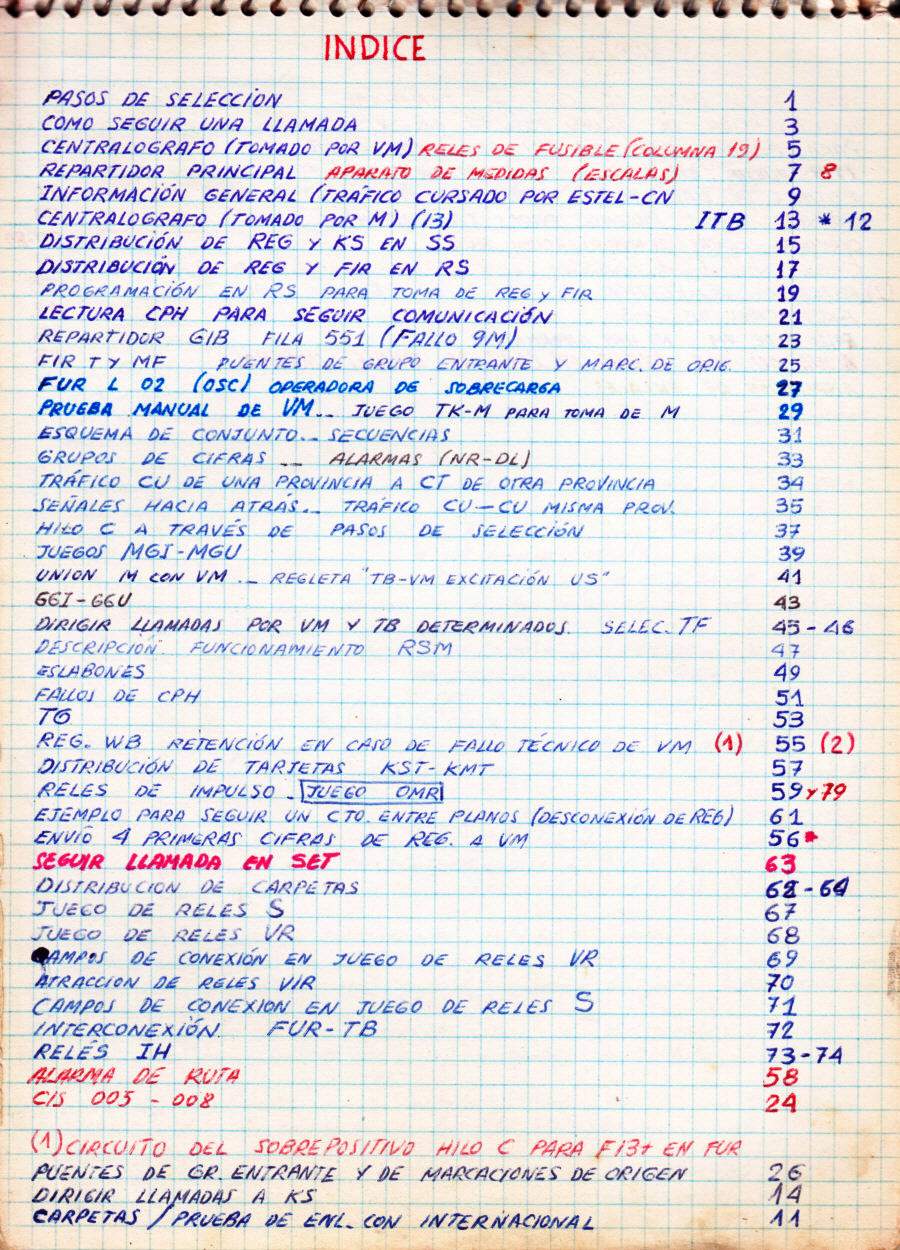 INDICE
PASOS DE SELECCION 1
COMO SEGUIR UNA LLAMADA 3
CENTRALOGRAFO (TOMADO POR VM) RELES DE FUSIBLE (COLUMNA 19) 5
REPARTIDOR PRINCIPAL APARATO DE MEDIDAS (ESCALAS) 7 8
INFORMACIÓN GENERAL (TRÁFICO CURSADO POR ESTEL-CN 9
CENTRALOGRAFO (TOMADO POR M) (13) ITB 13 * 12
DISTRIBUCIÓN DE REG Y KS EN SS 15
DISTRIBUCIÓN DE REG Y FIR EN RS 17
PROGRAMACIÓN EN RS PARA TOMA DE REG y FIR 19
LECTURA CPH PARA SEGUIR COMUNICACIÓN 21
REPARTIDOR GIB FILA 551 (FALLO 9M) 23
FIR T Y MF PUENTES DE GRUPO ENTRANTE Y MARC. DE ORIG. 25
FUR L 02 (OSC) OPERADORA DE SOBRECARGA 27
PRUEBA MANUAL DE VM._ JUEGO TK-M PARA TOMA DE M 29
ESQUEMA DE CONJUNTO._ SECUENCIAS 31
GRUPOS DE CIFRAS ._ ALARMAS (NR-DL) 33
TRÁFICO CU DE UNA PROVINCIA A CT DE OTRA PROVINCIA 34
SEÑALES HACIA ATRÁS._ TRÁFICO CU-CU MISMA PROV. 35
HILO C A TRAVÉS DE PASOS DE SELECCIÓN 37
JUEGOS MGI-MGU 39
UNION M CON VM ._ REGLETA "TB-VM EXCITACIÓN US" 41
GGI-GGU 43
DIRIGIR LLAMADAS POR VM Y TB DETERMINADOS. SELEC. TF 45-46
DESCRIPCIÓN FUNCIONAMIENTO RSM 47
ESLABONES 49
FALLOS DE CPH 51
TG 53
REG. WB RETENCIÓN EN CASO DE FALLO TÉCNICO DE VM (1) 55 (2)
DISTRIBUCIÓN DE TARJETAS KST-KMT 57
RELES DE IMPULSO . JUEGO OMR 59 y 79
EJEMPLO PARA SEGUIR UN CTO. ENTRE PLANOS (DESCONEXIÓN DE REG) 61
ENVIÓ 4 PRIMERAS CIFRAS DE REG. A VM 56
SEGUIR LLAMADA EN SET 63
DISTRIBUCION DE CARPETAS 62-64
JUEGO DE RELES S 67
JUEGO DE RELES VR 68
CAMPOS DE CONEXIÓN EN JUEGO DE RELES VR 69
ATRACCION DE RELES VIR 70
CAMPOS DE CONEXION EN JUEGO DE RELES S 71
INTERCONEXIÓN FUR-TB 72
RELÉS IH 73-74
ALARMA DE RUTA 58
CIS 005 - 008 24
(1) CIRCUITO DEL SOBREPOSITIVO HILO C PARA F13+ EN FUR
PUENTES DE GR. ENTRANTE Y DE MARCACIONES DE ORIGEN 26
DIRIGIR LLAMADAS A KS 14
CARPETAS / PRUEBA DE ENL. CON INTERNACIONAL 11